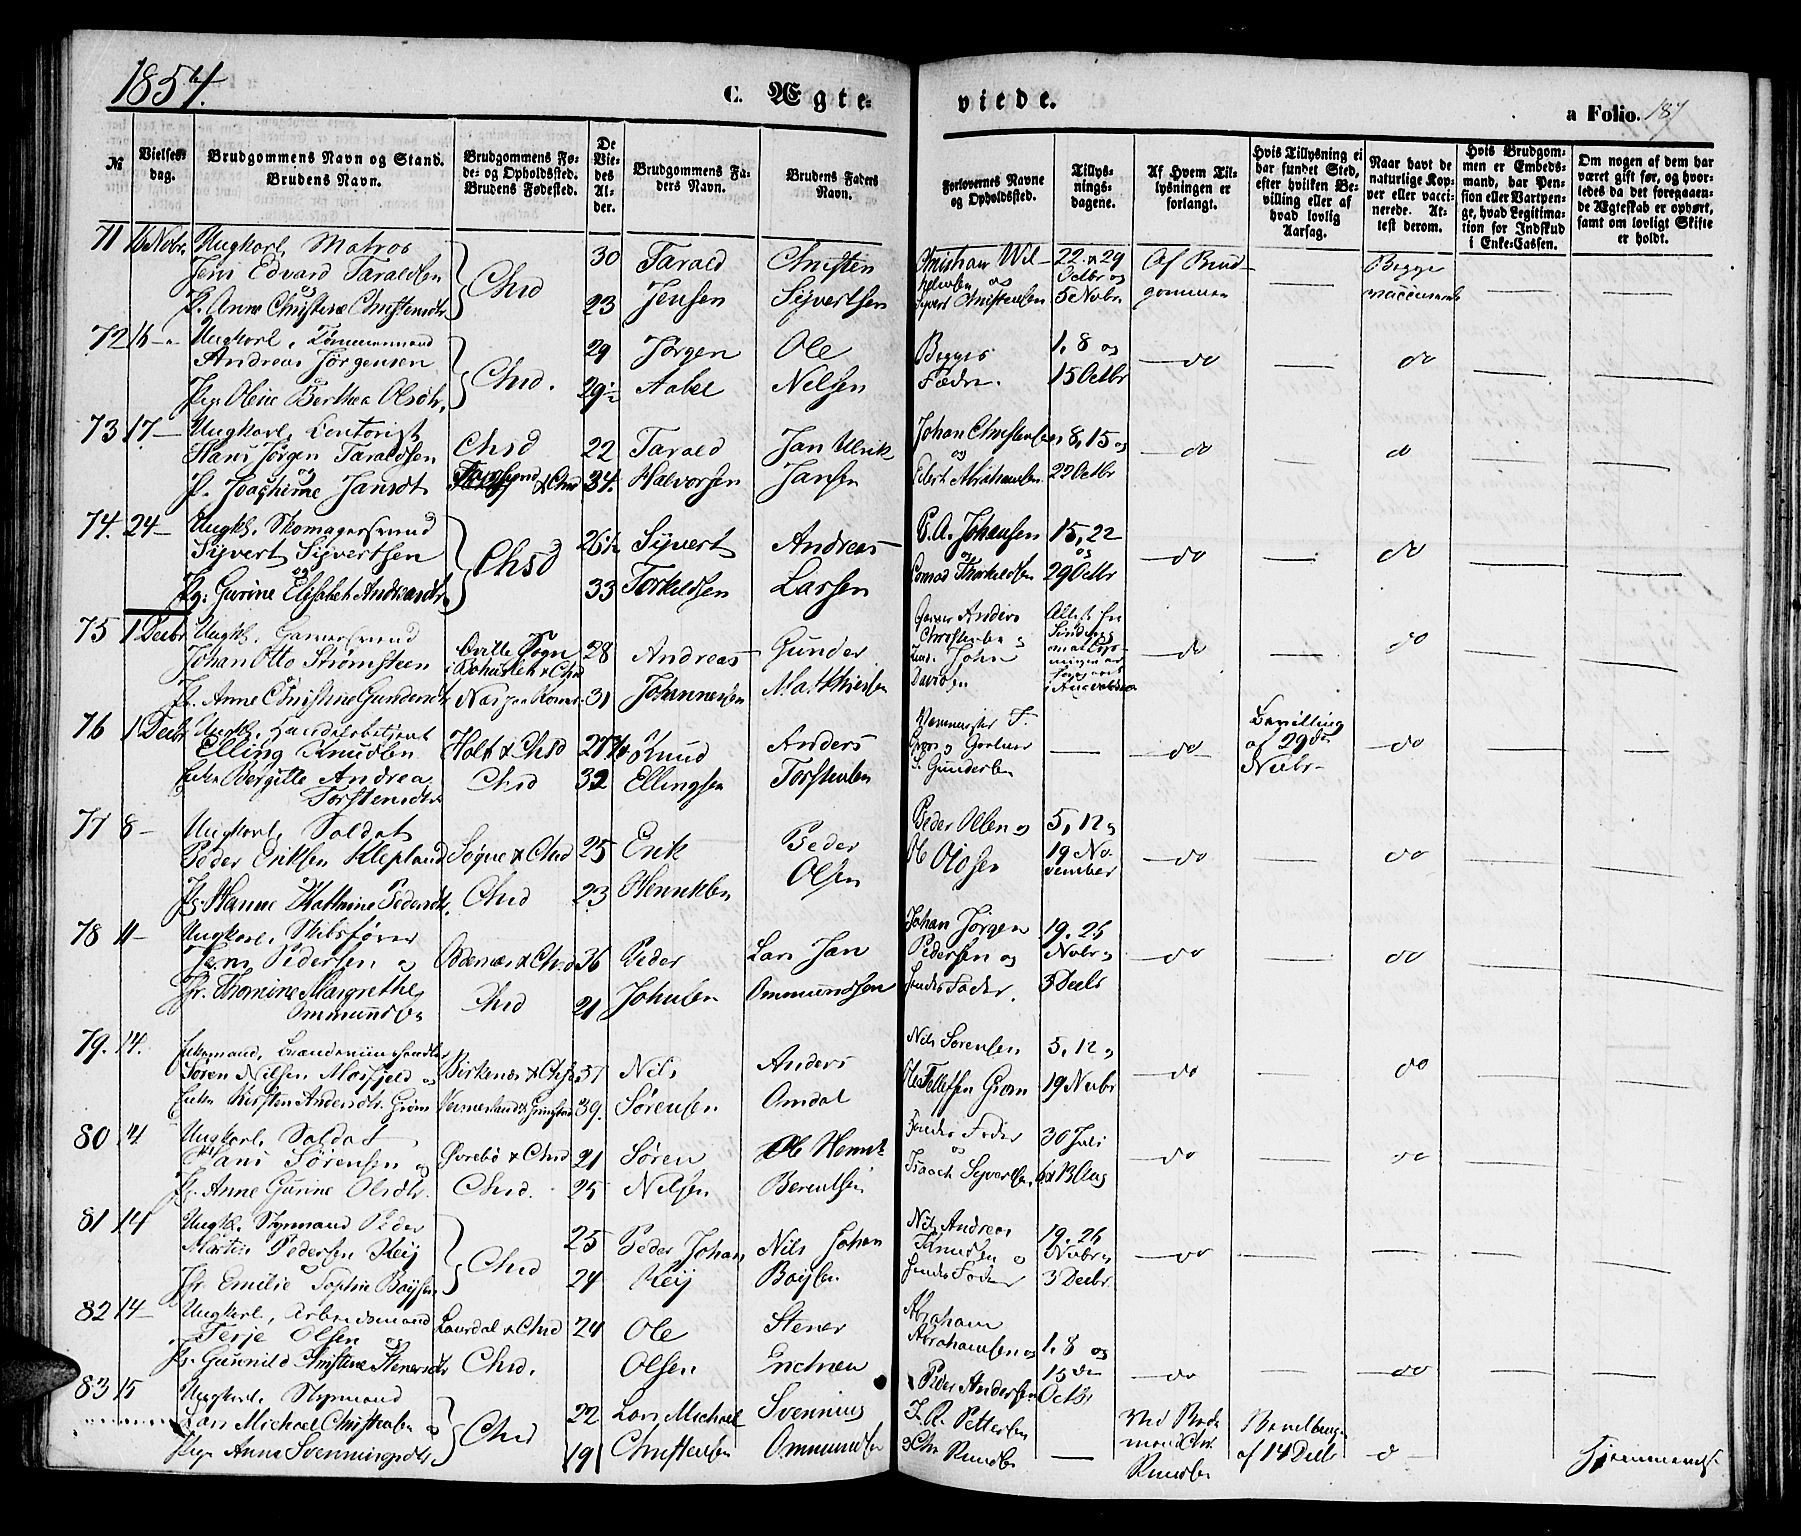 1854.
C. Ægte-
viede.
a Folio. 187
№
Vielses-
dag.
Brudgommens Navn og Stand.
Brudens Navn.
Brudgommens Fø-
de- og Opholdssted.
Brudens Fødested.
De
Vie-
des
Al-
der.
Brudgommens Fa-
ders Navn.
Brudens Faders
Navn.
Forlovernes Navne
og Opholdssted.
Tillys-
nings-
dagene.
Af Hvem Til-
lysningen er
forlangt.
Hvis Tillysning ei
har fundet Sted,
efter hvilken Be-
villing eller af
hvad lovlig
Aarsag.
Naar havt de
naturlige Kop-
per eller vacci-
nerede. At-
test derom.
Hvis Brudgom-
men er Embeds-
mand, har Pen-
sion eller Vartpen-
ge, hvad Legitima-
tion for Indskud
i Enke-Cassen.
Om nogen af dem har
været gift før, og hvor-
ledes da det foregaaen-
de Ægteskab er ophørt,
samt om lovligt Skifte
er holdt.
71 16 Novbr Ungkarl, Matros
Jens Edvard Taraldsen
og
P. Anne Christine Christensdtr
Chsd
30 Tarald Christen
23 Jensen Sijvertsen
Christian Wil-
helmsen og
Sijvert Christensen
22 & 29
Octbr og
5 Novbr
Af Brud-
gommen
Begge
vaccinerede
72 16 - Ungkarl, Tømmermand
Andreas Jørgensen
og
Pige Oline Berthea Olsdtr.
Chsd.
29 Jørgen Ole
29½ Aake Nelsen
Begges
Fædre.
1, 8 og
15 Octbr
do
do
73 17 - Ungkarl, Contorist
Hans Jørgen Taraldsen
og
P. Joachime Jansdt
Chsd
& Chsd
22 Tarald Jan Ulrik
34. Halvorsen Jansen
Johan Christensen
og
Edert Abrahamsen
8, 15 og
22 Octbr
do
do
74. 24 - Ungk., Skomagersvend
Sijvert Sijvertsen
og
Pg. Gurine Elisabet Andreasdtr
Chsd
26½ Sijvert Andreas
33 Torkildsen Larsen
P. A. Johansen
og
Conrad Thorkildsen
15, 22
og
29 Octbr
do
do
75 1 Decbr Ungk., Garversvend
Johan Otto Strømsteen
og
P. Anne Christine Gundersdtr
Qville Sogn
i Bohuslen & Chsd
28 Andreas Gunder
31 Johannesen Matthiesen
Garver Anders
Christensen og
John
Davidsen
do
do
76 1 Decbr Ungk., Handelsbetjent
Elling Knudsen
og
Enken Bergitte Andrea
Torstensdtr
Holt & Chsd
Chsd
27¾ Knud Anders
32 Ellingsen Torstensen
S. Gundersen
do
Bevilling
af 29de
Novbr
do
77 8 - Ungkarl, Soldat
Peder Eriksen Klepland
og
Pg. Hanne Kathrine Pedersdtr.
Søgne & Chsd
Chsd
25 Erik Peder
23 Henriksen Olsen
Peder Olsen og
5, 12 og
19 No-
vember
do
do
78 11 - Ungkarl, Skibsfører
Jens Pedersen og
Jfr. Thomine Margrethe
Ommundsen
Oddernes & Chsd
Chsd
36 Peder Lars Jan
21 Johnsen Ommundsen
Johan Jørgen
Pedersen og
hendes Fader.
19. 26
Novbr og
3 Decbr
do
do
79. 14. Enkemand, Brændeviinshandler
Søren Nilsen Mosfjeld og
Enken Kirsten Andersdtr. Grøm
Birkenes & Chsd
& Grimstad
37 Nils Anders
39. Sørensen Omdal
Nils Sørensen
Tellefsen Grøm
5, 12 og
19 Novbr
do
do
80 14 Ungkarl, Soldat
Hans Sørensen og
P. Anne Gurine Olsdtr.
Øvrebø & Chsd
Chsd.
21 Søren Ole Henrik
25 Nilsen Berentsen
hendes Fader
og
Isaach Sijvertsen
30 Juli
6 & 13 Aug
do
do
81 14 Ungk. Styrmand Peder
Martin Pedersen Keij
og
Jfr Emilie Sophie Boijsen
Chsd
25 Peder Johan Nils Johan
24 Keij Boijsen
Nils Andreas
Knudsen og
hendes Fader
19. 26
Novbr og
3 Decbr
do
82 14 - Ungkarl, Arbeidsmand
Terje Olsen og
P. Gunnild Christine Stenersdtr
Laurdal & Chsd
Chsd.
24 Ole Stener
Olsen Endresen
Abraham
Abrahamsen og
Peder Andersen
1. 8 og
15de
Octbr
do
do
83 15 Ungkarl, Styrmand
Lars Michael Christensen og
Pige Anne Svenningsdtr.
Chsd
22 Lars Michael Svennius
19 Christensen Ommundsen
J. R. Pettersen
og Chr.
Knudsen
Knudsen
Bevilling
af 14 Decbr
do